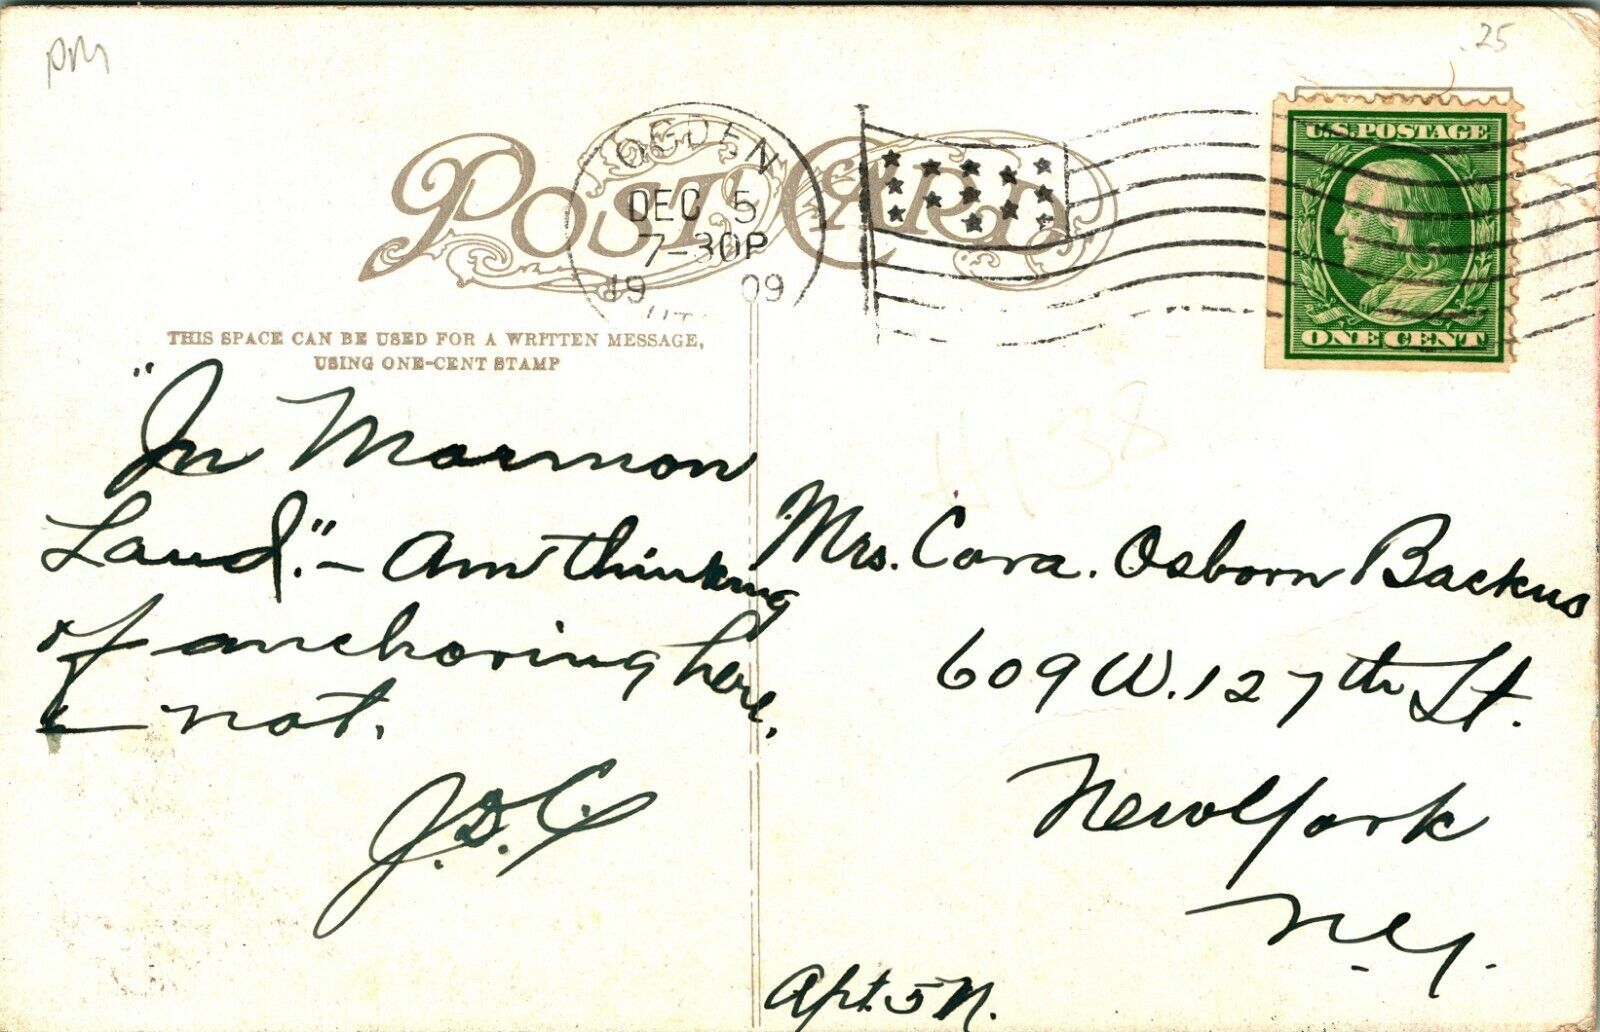 PM
.25
POST CARD
OGDEN
DEC 5
7-30P
1909
UT
U.S. POSTAGE
ONE CENT
THIS SPACE CAN BE USED FOR A WRITTEN MESSAGE,
USING ONE-CENT STAMP
"In Marmon
Land." - Am thinking
of anchoring here,
- not.
J.D.C.
H138
Mrs. Cora. Osborn Backus
609 W. 127th St.
New York
N.Y.
Apt. 5 N.